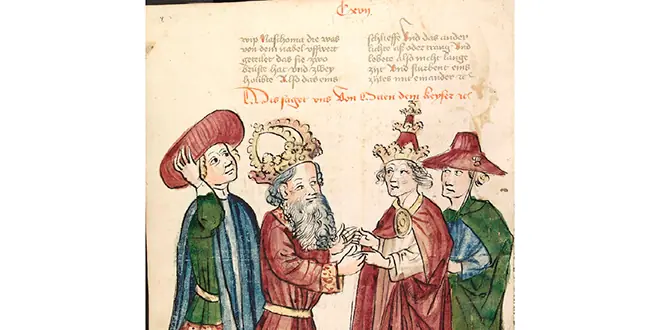 Cxvij
wip Naschoma die was
von dem nabel vffwert
geteilet das sie zwo
brüste hat Vnd zwey
höibte Also das eins
schlieffe Vnd das ander
aß oder trang Vnd
lebete also nicht lange
zyt Vnd sturbent eins
zytes mit einander
Dis saget vns Von Otten dem keyser